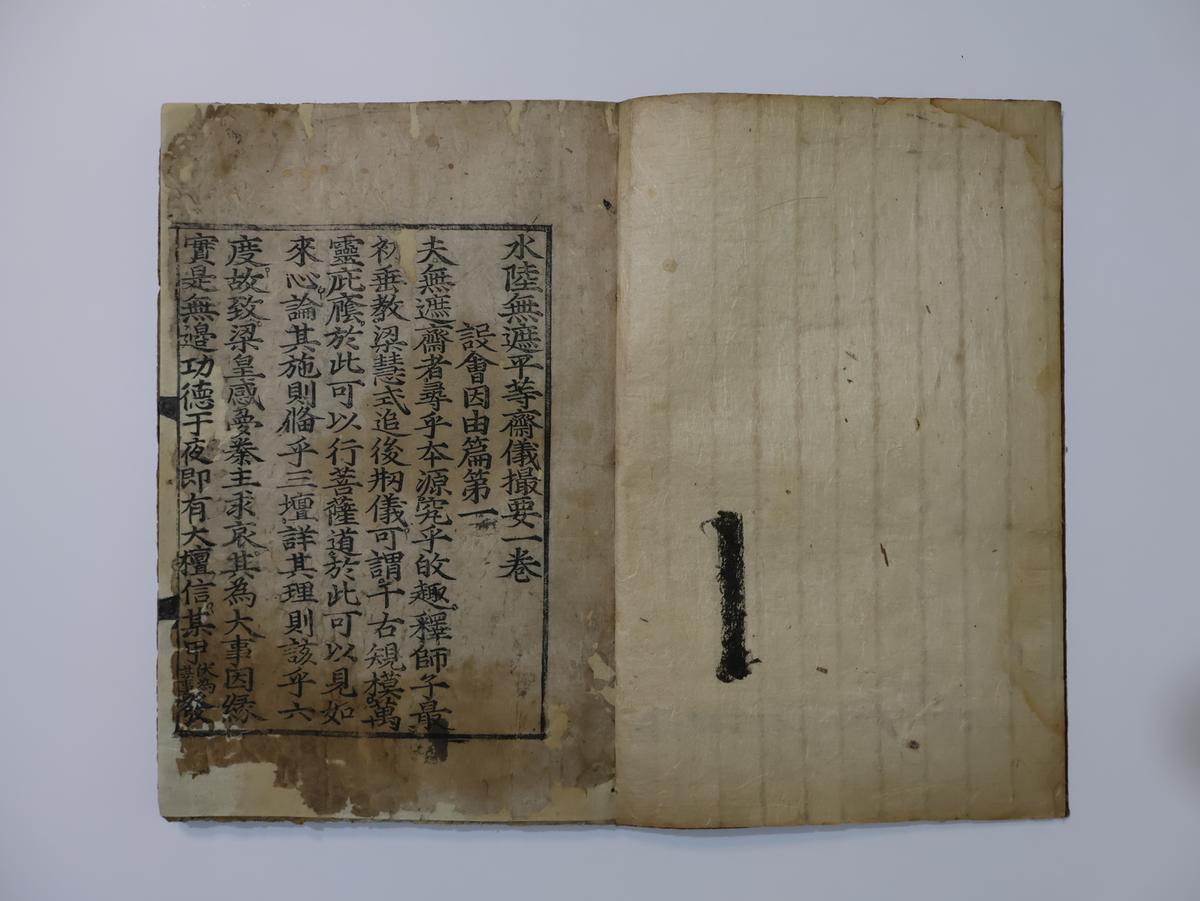 水陸無遮平等齋儀撮要一卷
設會因由篇第一
夫無遮齋者尋乎本源究乎的趣釋師子最
初垂教梁慧式追後刱儀可謂千古䂓模萬
靈庇廕於此可以行菩薩道於此可以見如
來心論其施則俻乎三壇詳其理則該乎六
度故致梁皇感夢秦主求哀其為大事因緣
實是無邊功德于夜即有大檀信某甲伏為發